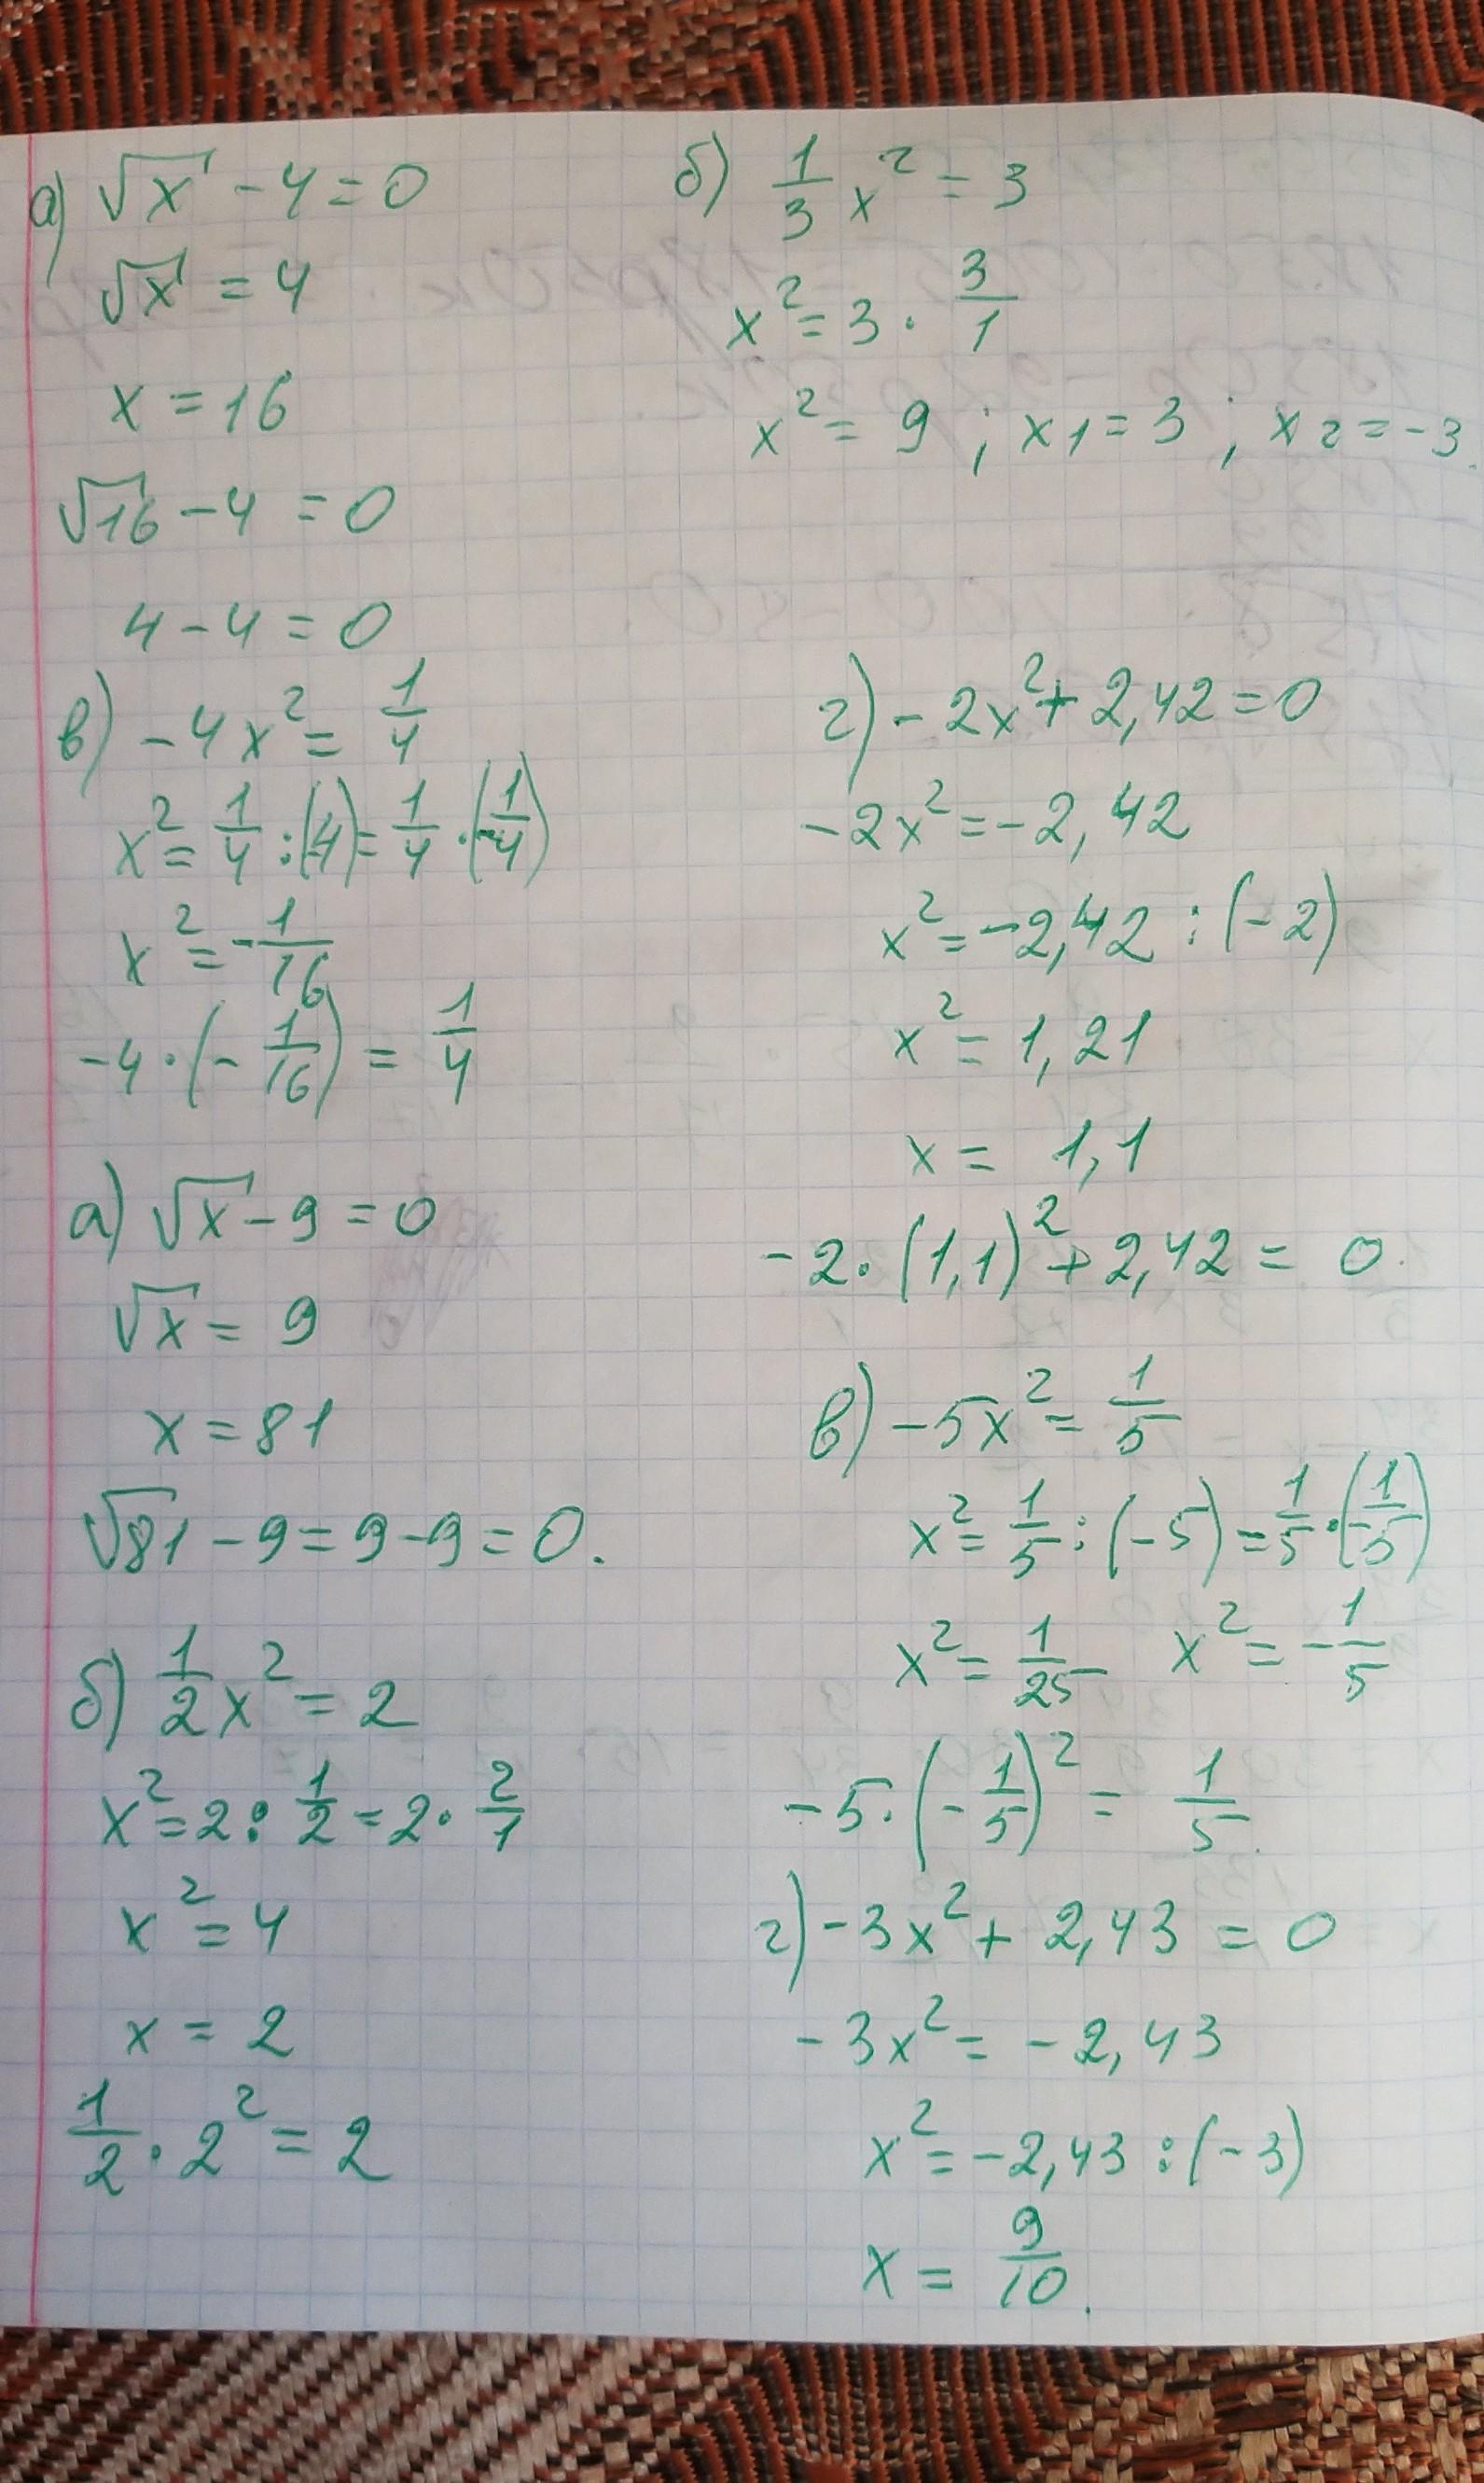 а) √x - 4 = 0
√x = 4
x = 16
√16 - 4 = 0
4 - 4 = 0
б) 1/3 x² = 3
x² = 3 · 3/1
x² = 9 ; x1 = 3 ; x2 = -3.
в) -4x² = 1/4
x² = 1/4 : (-4) = 1/4 · (-1/4)
x² = -1/16
-4 · (-1/16) = 1/4
г) -2x² + 2,42 = 0
-2x² = -2,42
x² = -2,42 : (-2)
x² = 1,21
x = 1,1
-2 · (1,1)² + 2,42 = 0.
а) √x - 9 = 0
√x = 9
x = 81
√81 - 9 = 9 - 9 = 0.
б) 1/2 x² = 2
x² = 2 : 1/2 = 2 · 2/1
x² = 4
x = 2
1/2 · 2² = 2
в) -5x² = 1/5
x² = 1/5 : (-5) = 1/5 · (1/-5)
x² = 1/25 x² = -1/5
-5 · (-1/5)² = 1/5.
г) -3x² + 2,43 = 0
-3x² = -2,43
x² = -2,43 : (-3)
x = 9/10.